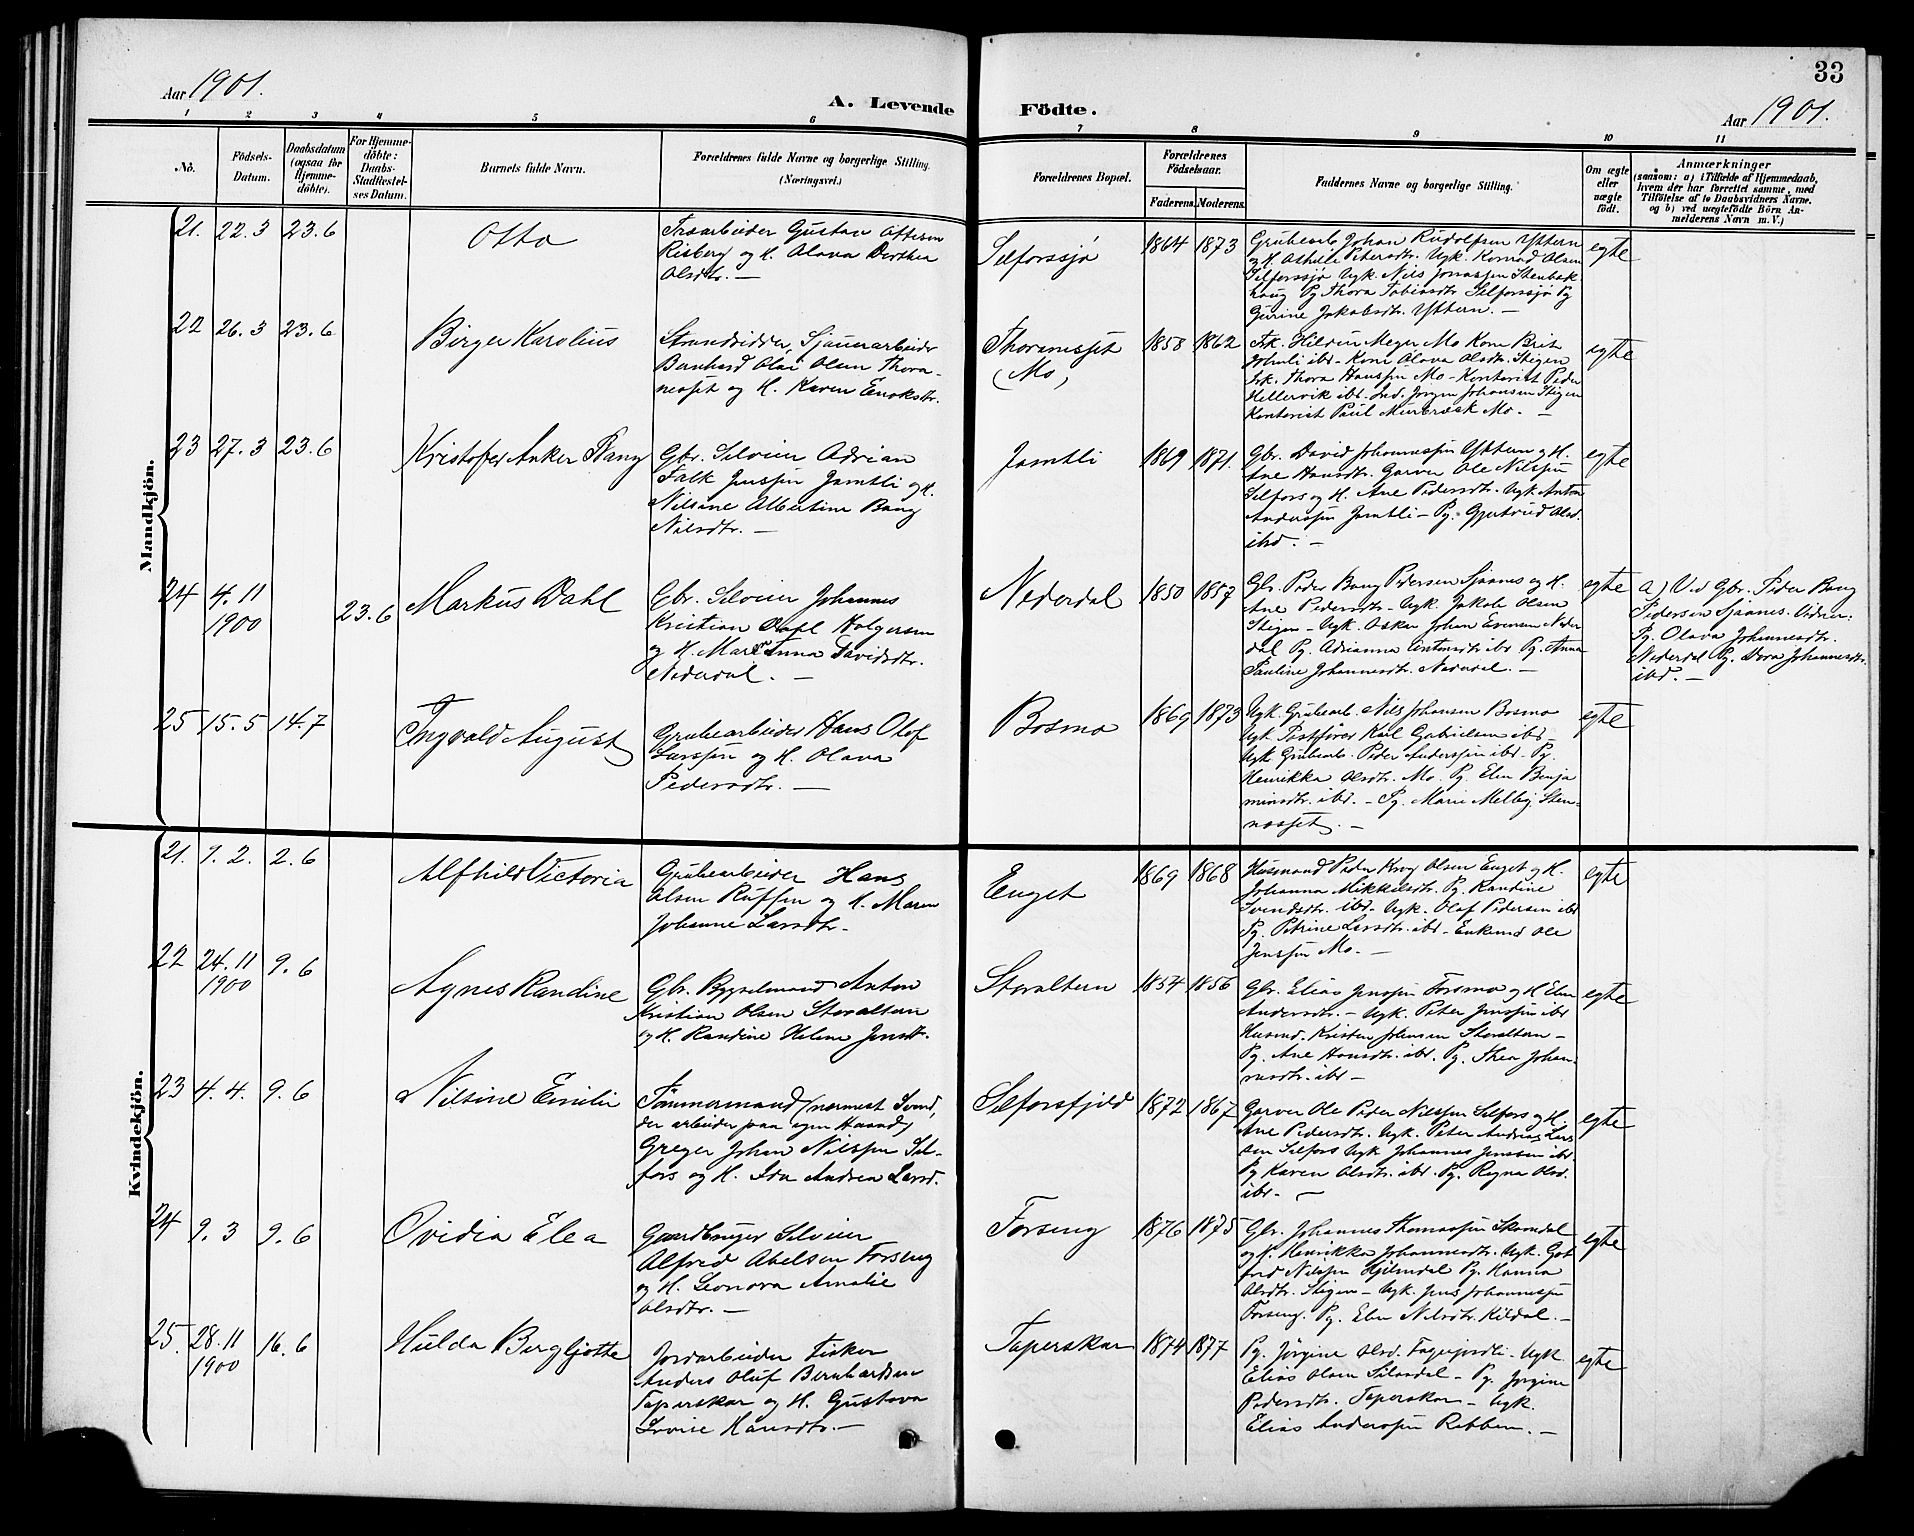 33
Aar 1901.
A. Levende Födte.
Aar 1901.
1 2 3 4 5 6 7 8 9 10 11
No.
Födsels-Datum.
Daabsdatum (ogsaa for Hjemmedöbte).
For Hjemmedöbte: Daabs-Stadfestelses Datum.
Barnets fulde Navn.
Forældrenes fulde Navne og borgerlige Stilling. (Næringsvei.)
Forældrenes Bopæl.
Forældrenes Födselsaar.
Faderens. Moderens.
Faddernes Navne og borgerlige Stilling.
Om ægte eller uægte födt.
Anmærkninger
(saasom: a) i Tilfælde af Hjemmedaab,
hvem der har forrettet samme, med
Tilföielse af to Daabsvidners Navne.
og b) ved uægtefödte Börn Anmelderens Navn m. V.)
Mandkjön.
21. 22.3 23.6
Otto
Gustav Ottesen
Risberg og H. Olava Dorthea
Olsdtr. —
Selforssjø
1864 1873
Grubearb. Johan Rudolfsen Yttern
og H. Pedersdtr. Ugk. Konrad Olsen
Selforssjø Ugk. Nils Jonassen Stenbæk
haug Pg Thora Tobiasdtr. Selforssjø Pg
Gurine Jakobsdtr. Yttern. —
egte
22 26.3 23.6
Birger Karolius
Strandsidder, Sjauerarbeider
Bernhard Olai Olsen Thora-
neset og H. Karen Enoksdtr.
Thoraneset
(Mo)
1858 1862
Frk. Meyer Mo Kone Brit
ibd. Kone Olava Olsdtr. Stigen
Frk. Thora Hanssen Mo - Kontorist Peder
Hellervik ibd. Ind. Jørgen Johansen Stigen
Kontorist Paul Mo. —
egte
23 27.3 23.6
Kristofer Anker Bang
Gbr. Selveier Adrian
Falk Jenssen Jamtli og H.
Nilsine Albertine Bang
Nilsdtr. —
Jamtli
1869 1871.
Gbr. David Johannessen Yttern og H.
Ane Hansdtr. Garver Ole Nilssen
Selfors og H. Ane Pedersdtr. Ugk. Anton
Anderssen Jamtli - Pg. Gjertrud Olsd.
ibd. —
egte
24 4.11
1900
23.6
Markus Dahl
Gbr. Selveier Johannes
Kristian Dahl Holgersen
og H. Maren Anna Davidsdtr.
Nederdal. —
Nederdal
1850 1857
Gbr. Peder Bang Pedersen Sjaanes og H.
Ane Pedersdtr - Ugk. Jakob Olsen
Stigen - Ugk. Oskar Johan Evensen Neder
dal Pg. Adrianna Antonsdtr ibd Pg. Anna
Pauline Johannesdtr. Nederdal. —
egte
a) Ved Gbr. Peder Bang
Pedersen Sjaanes. Vidner:
Pg. Olava Johannesdtr.
Nederdal Pg. Dora Johannesdtr.
ibd. —
25 15.5 14.7
Ingvald August
Grubearbeider Hans Olof
Larssen og H. Olava
Pedersdtr. —
Bosmo
1869 1873
Ugk. Grubearb. Nils Johansen Bosmo
Ugk Postfører Karl Gabrielsen ibd -
Ugk Grubearb. Peder Anderssen ibd. Pg.
Henrikka Olsdtr. Mo. Pg. Elen Benja
minsdtr. ibd. - Pg. Marie Melby Sten-
neset. —
egte
Kvindekjön.
21. 9.2. 2.6
Alfhild Victoria
Grubearbeider Hans
Olsen Ruffen og H. Maren
Johanne Larsdtr. -
Enget
1869 1868
Husmand Peder Krog Olsen Enget og H.
Johanna Mikkelsdtr. Pg. Randine
Svendsdtr. ibd - Ugk. Olaf Pedersen ibd
Pg. Petrine Larsdtr. ibd - Enkemd Ole
Jenssen Mo. —
egte
22 24.11
1900
9.6
Agnes Randine
Gbr. Bygselmand Anton
Kristian Olsen Storaltern
og H. Randine Helene Jensdtr.
Storaltern
1854 1856
Gbr. Elias Jenssen Forsmo og H Elen
Andersdtr. - Ugk. Peter Jenssen ibd
Husmd. Kristen Johnsen Storaltern -
Pg. Ane Hansdtr. ibd. Pg. Thea Johan-
nesdtr. ibd —
egte
23 4.4. 9.6
Nilsine Emilie
Tømmermand (nærmest Svend,
der arbeider paa egen Haand)
Greger Johan Nilssen Sel-
fors og H. Ida Andrea Larsd.
Selforsfjeld
1872 1867
Garver Ole Peder Nilssen Selfors og H.
Ane Pedersdtr. Ugk. Peter Andreas Lars
sen Selfors Ugk Johannes Jenssen ibd
Pg Karen Olsdtr. ibd. Pg. Regna Olsd.
ibd. —
egte
24 9.3 9.6
Ovidia Elea
Gaardbruger Selveier
Alfred Abelsen Forseng
og H. Leonora Amalie
Olsdtr. —
Forseng
1876 1875
Gbr. Johannes Thomassen Skamdal
og H. Henrikka Johannesdtr. Ugk. Got
fred Nilssen Hjelmdal Pg. Hanna
Olsdtr. Stigen - Ugk. Jens Johannessen
Forseng. Pg. Elen Nilsdtr. Kildal. —
egte
25. 28.11
1900
16.6
Hulda Bergljotte
Jordarbeider Fisker
Anders Oluf Bernhardsen
Taperskar og H. Gustava
Lovise Hansdtr. —
Taperskar
1874 1877
Pg. Jørgine Olsd. Fagerjordli - Ugk
Elias Olsen - Pg. Jørgine
Pedersdtr. Taperskar - Ugk.
Elias Anderssen Ribben. —
egte